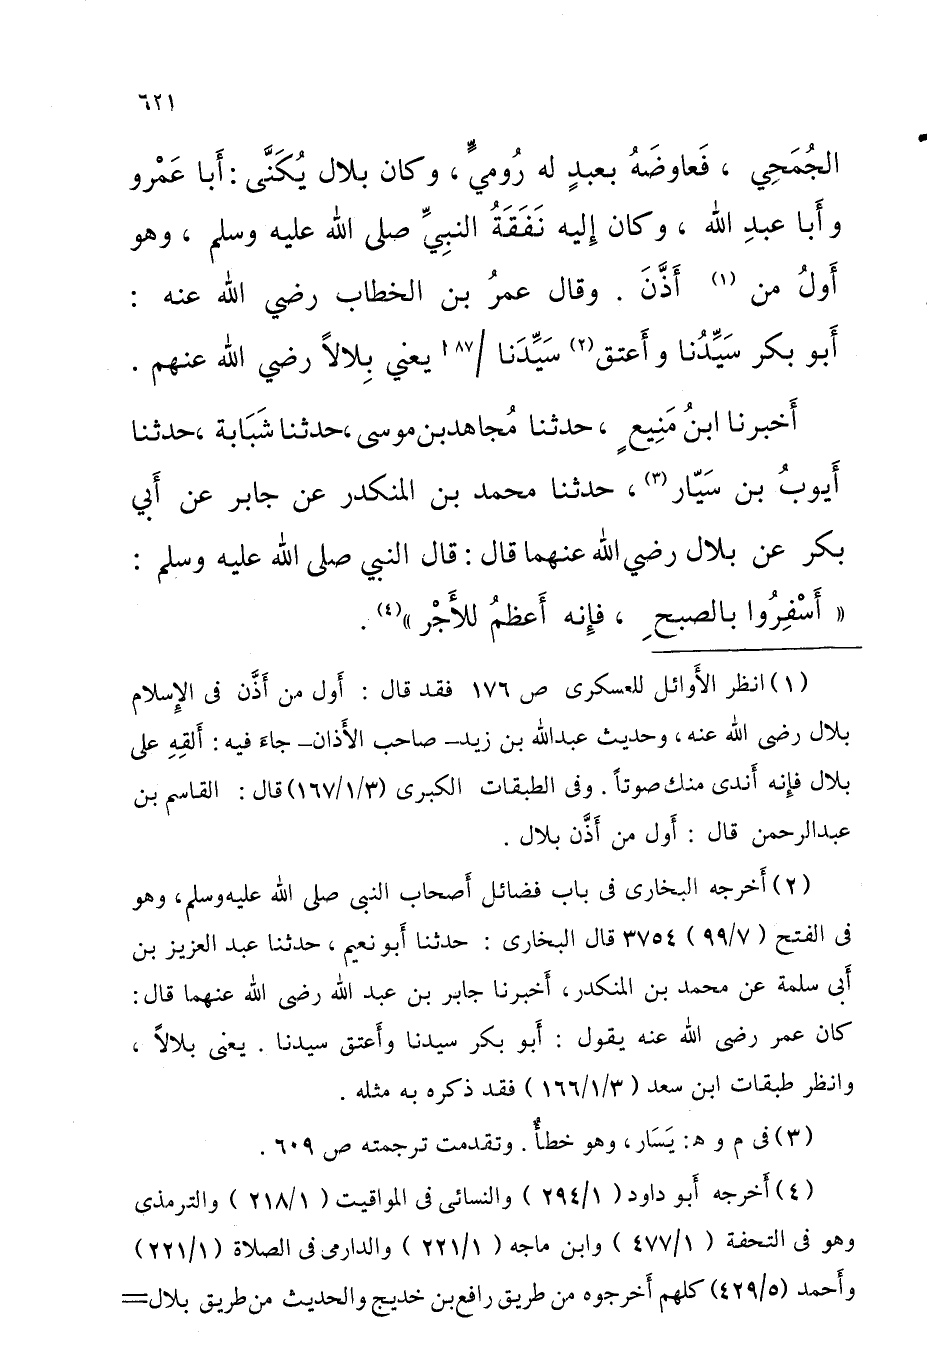 ٦٢١
الجُمَحِي ، فَعاوضَهُ بعبدٍ له رُوميٍّ ، وكان بلال يُكَنَّى : أَبا عَمْرو
وأَبا عبدِ الله ، وكان إليه نَفَقَةُ النبيِّ صلى الله عليه وسلم ، وهو
أَولُ من (١) أَذَّنَ . وقال عمرُ بن الخطاب رضي الله عنه :
أَبو بكر سَيِّدُنا وأَعتق(٢) سَيِّدَنا /١٨٧ يعني بِلالاً رضي الله عنهم .
أَخبرنا ابنُ مَنِيعٍ ، حدثنا مُجاهد بن موسى ، حدثنا شَبَابة ، حدثنا
أَيوبُ بن سَيّار(٣) ، حدثنا محمد بن المنكدر عن جابر عن أَبي
بكر عن بلال رضي الله عنهما قال : قال النبي صلى الله عليه وسلم :
« أَسْفِرُوا بالصبحِ ، فإنه أَعظمُ للأَجْرِ »(٤) .
(١) انظر الأَوائل للعسكرى ص ١٧٦ فقد قال : أَول من أَذَّن فى الإِسلام
بلال رضى الله عنه ، وحديث عبدالله بن زيد ــ صاحب الأَذان ــ جاءَ فيه : أَلقِهِ على
بلال فإنه أَندى منك صوتاً . وفى الطبقات الكبرى (١٦٧/١/٣) قال : القاسم بن
عبدالرحمن قال : أَول من أَذَّن بلال .
(٢) أَخرجه البخارى فى باب فضائل أَصحاب النبى صلى الله عليه وسلم ، وهو
فى الفتح ( ٩٩/٧ ) ٣٧٥٤ قال البخارى : حدثنا أَبو نعيم ، حدثنا عبد العزيز بن
أَبى سلمة عن محمد بن المنكدر ، أَخبرنا جابر بن عبد الله رضى الله عنهما قال :
كان عمر رضى الله عنه يقول : أَبو بكر سيدنا وأَعتق سيدنا . يعنى بلالاً ،
وانظر طبقات ابن سعد ( ١٦٦/١/٣ ) فقد ذكره به مثله .
(٣) فى م و ه : يَسَار ، وهو خطأٌ . وتقدمت ترجمته ص ٦٠٩ .
(٤) أَخرجه أَبو داود ( ٢٩٤/١ ) والنسائى فى المواقيت ( ٢١٨/١ ) والترمذى
وهو فى التحفة ( ٤٧٧/١ ) وابن ماجه ( ٢٢١/١ ) والدارمى فى الصلاة ( ٢٢١/١ )
وأَحمد (٤٢٩/٥) كلهم أَخرجوه من طريق رافع بن خديج والحديث من طريق بلال =